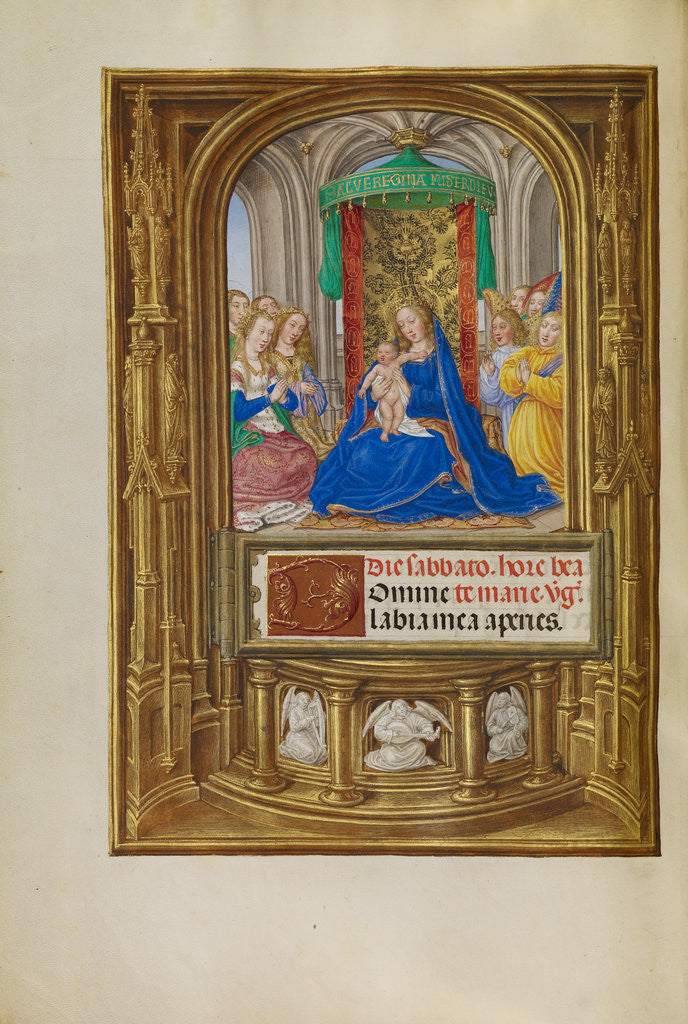 SALVE REGINA MISERDIEV
Die sabbato. hore bea
Omine te marie v̓gı̓.
labia mea aperies.